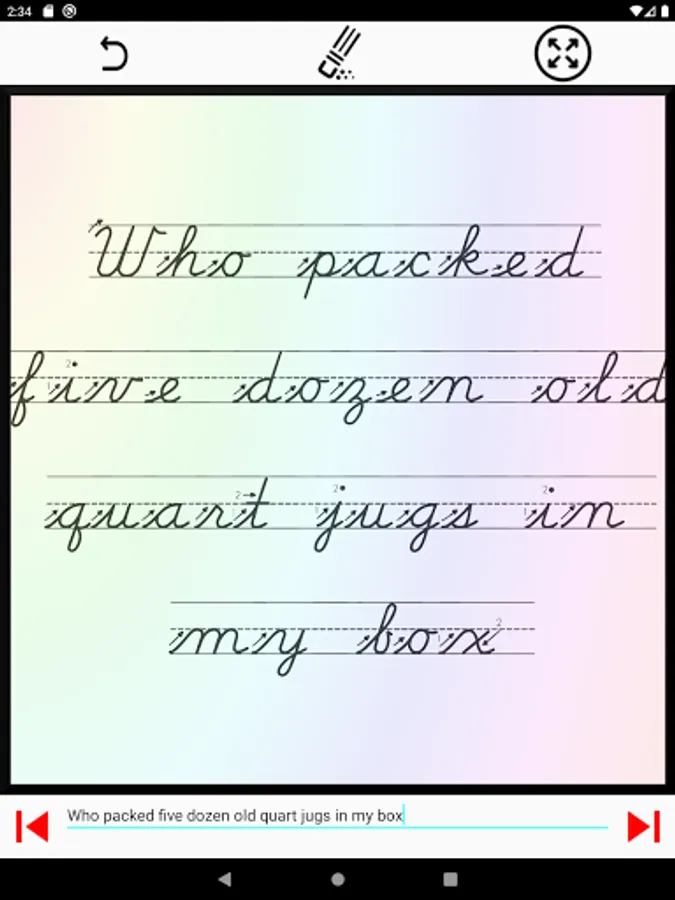 2:34
Who packed
five dozen old
quart jugs in
my box
Who packed five dozen old quart jugs in my box